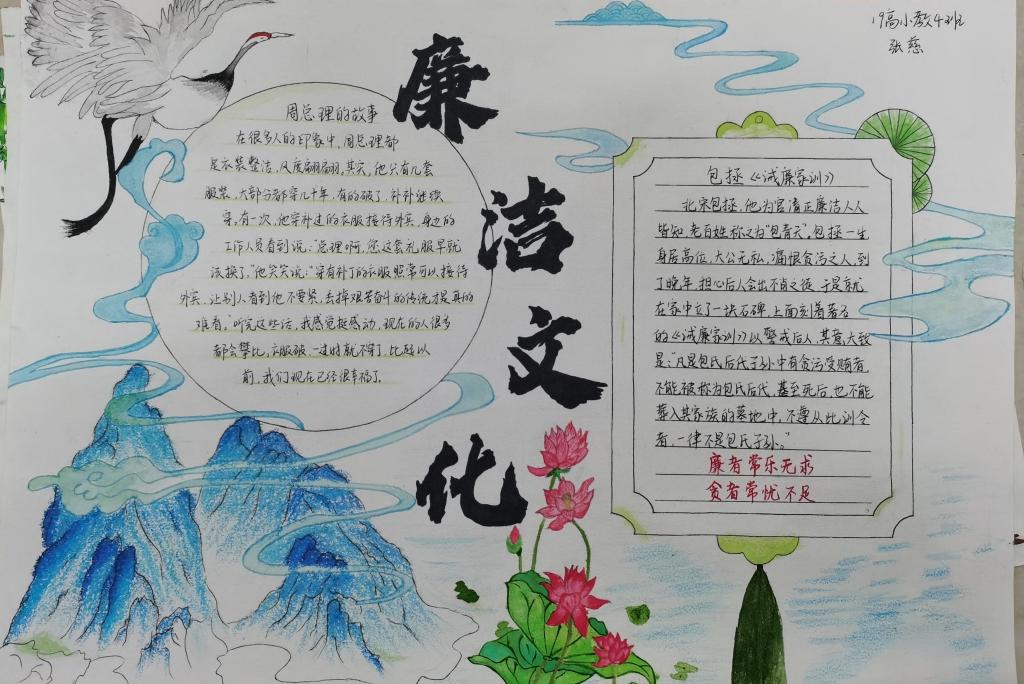 19高小教4班
张慈
廉洁文化
周总理的故事
在很多人的印象中,周总理都
是衣装整洁,风度翩翩,其实,他只有几套
服装,大部分都穿几十年,有的破了,补补继续
穿,有一次,他穿补过的衣服接待外宾,身边的
工作人员看到说:“总理啊,您这套礼服早就
该换了,”他笑笑说:“穿有补丁的衣服照常可以接待
外宾,让别人看到他不要紧,丢掉艰苦奋斗的传统才是真的
难看。”听完这些话,我感觉挺感动,现在的人很多
都会攀比,衣服破、一过时就不穿了,比起以
前,我们现在已经很幸福了。
包拯《诫廉家训》
北宋包拯,他为官清正廉洁人人
皆知,老百姓称之为“包青天”。包拯一生
身居高位,大公无私,痛恨贪污之人,到
了晚年,担心后人会出不肖之徒,于是就
在家中立了一块石碑,上面刻着著名
的《诫廉家训》以警戒后人,其意大致
是:“凡是包氏后代子孙中有贪污受贿者,
不能被称为包氏后代,甚至死后,也不能
葬入其家族的墓地中,不遵从此训令
者,一律不是包氏子孙。”
廉者常乐无求
贪者常忧不足